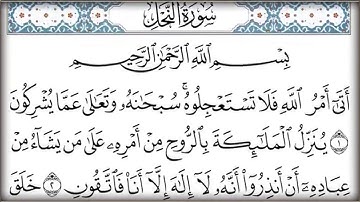 سُورَةُ النَّحْلِ
بِسْمِ اللَّهِ الرَّحْمَٰنِ الرَّحِيمِ
أَتَىٰٓ أَمْرُ ٱللَّهِ فَلَا تَسْتَعْجِلُوهُ ۚ سُبْحَٰنَهُۥ وَتَعَٰلَىٰ عَمَّا يُشْرِكُونَ
۝١ يُنَزِّلُ ٱلْمَلَٰٓئِكَةَ بِٱلرُّوحِ مِنْ أَمْرِهِۦ عَلَىٰ مَن يَشَآءُ مِنْ
عِبَادِهِۦٓ أَنْ أَنذِرُوٓا۟ أَنَّهُۥ لَآ إِلَٰهَ إِلَّآ أَنَا۠ فَٱتَّقُونِ ۝٢ خَلَقَ